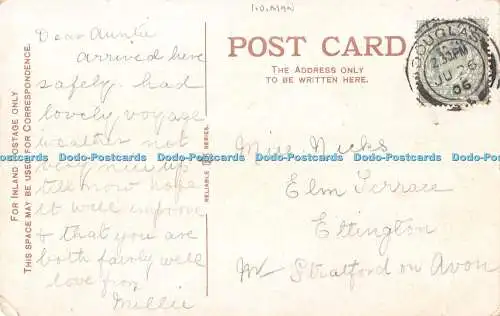 I.O.MAN
POST CARD
THE ADDRESS ONLY
TO BE WRITTEN HERE.
FOR INLAND POSTAGE ONLY
THIS SPACE MAY BE USED FOR CORRESPONDENCE.
RELIABLE SERIES.
DOUGLAS
JU 26
06
Dear Auntie
arrived here
safely. had
lovely voyage
weather not
very nice up
till now hope
it will improve
& that you are
both fairly well
love from
Millie
Miss Nicks
Elm Terrace
Ettington
Nr Stratford on Avon
Dodo-Postcards Dodo-Postcards Dodo-Postcards Dodo-Postcards
www.dodo-postcards.com